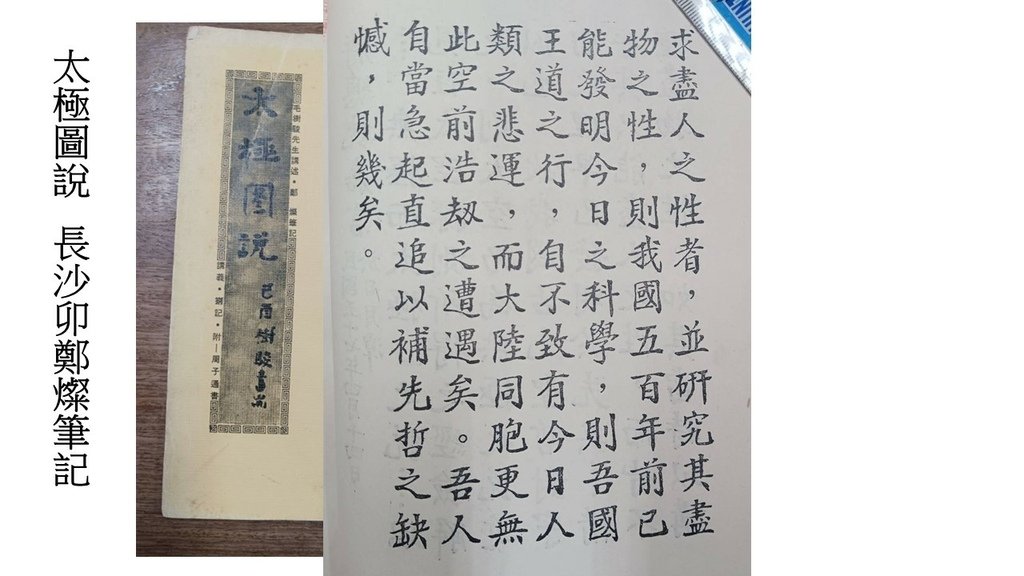 太極圖說 長沙卯鄭燦筆記
毛樹駿先生講述・鄭 燦筆記
太極圖說
己酉樹駿書耑
講義・劄記・附—周子通書
求盡人之性者，並研究其盡
物之性，則我國五百年前已
能發明今日之科學，則吾國
王道之行，自不致有今日人
類之悲運，而大陸同胞更無
此空前浩劫之遭遇矣。吾人
自當急起直追以補先哲之缺
憾，則幾矣。